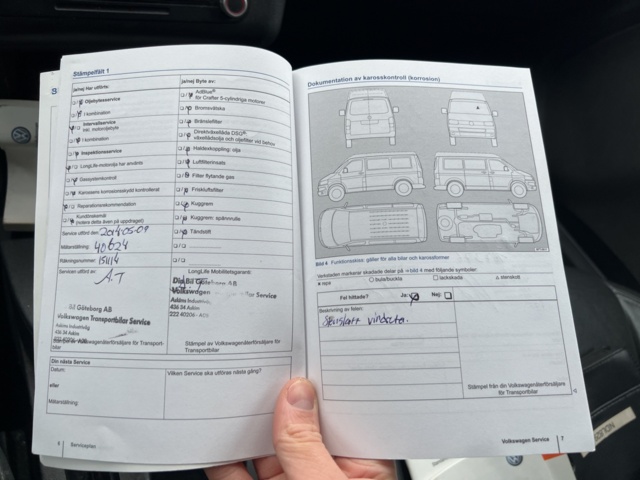 Stämpelfält 1
ja/nej Har utförts:
Oljebytesservice
I kombination
Intervallservice
inkl. motoroljebyte
I kombination
Inspektionsservice
LongLife-motorolja har använts
Gassystemkontroll
Karossens korrosionsskydd kontrollerat
Reparationsrekommendation
Kundönskemål
(notera detta även på uppdraget)
Service utförd den: 2014-05-09
Mätarställning: 40624
Räkningsnummer: 151114
Servicen utförd av: A.T
Göteborg AB
Volkswagen Transportbilar Service
Askims Industriväg
436 34 Askim
Stämpel av Volkswagenåterförsäljare för Transport-
bilar
ja/nej Byte av:
AdBlue®
för Crafter 5-cylindriga motorer
Bromsvätska
Bränslefilter
Direktväxellåda DSG®:
växellådsolja och oljefilter vid behov
Haldexkoppling: olja
Luftfilterinsats
Filter flytande gas
Friskluftsfilter
Kuggrem
Kuggrem: spännrulle
Tändstift
LongLife Mobilitetsgaranti:
Din Bil Göteborg AB
Volkswagen Service
Askims Industriväg
436 34 Askim
Stämpel av Volkswagenåterförsäljare för
Transportbilar
Din nästa Service
Datum:
eller
Mätarställning:
Vilken Service ska utföras nästa gång?
6 Serviceplan
Dokumentation av karosskontroll (korrosion)
Bild 4 Funktionsskiss: gäller för alla bilar och karossformer
Verkstaden markerar skadade delar på bild 4 med följande symboler:
x repa
bula/buckla
lackskada
stenskott
Fel hittades? Ja: Nej:
Beskrivning av felen:
Stenskott vindruta.
Stämpel från din Volkswagenåterförsäljare
för Transportbilar
Volkswagen Service 7